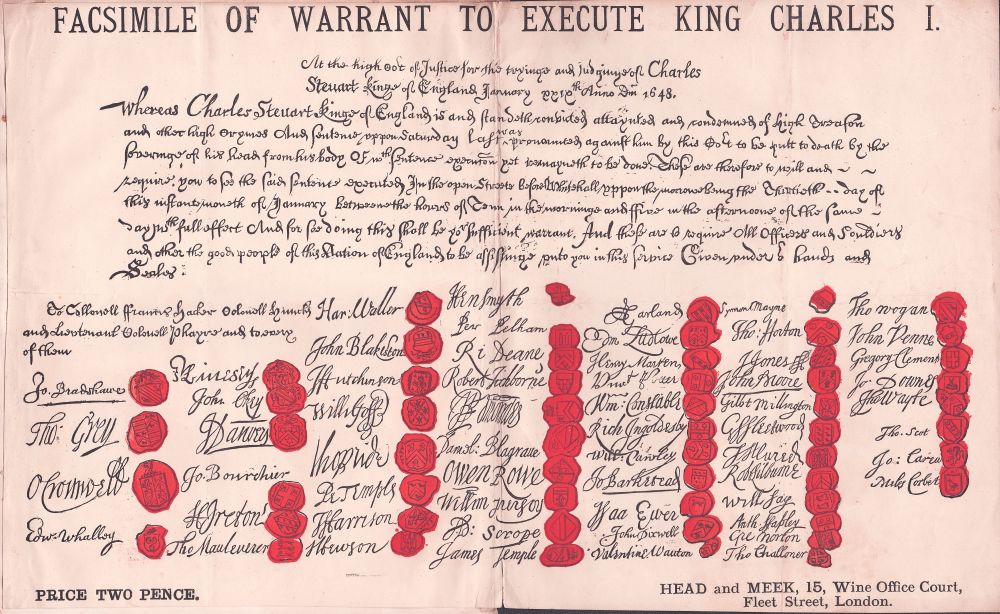 FACSIMILE OF WARRANT TO EXECUTE KING CHARLES I.
At the high Cot of Justice for the tryinge and judginge of Charles
Steuart kinge of England January xxixth Anno Dm 1648.
Whereas Charles Steuart kinge of England is and standeth convicted attaynted and condemned of high Treason
and other high Crymes And sentence uppon Saturday last was pronounced against him by this Cort to be putt to death by the
severinge of his head from his body Of wch sentence execucon yet remayneth to be done. These are therefore to will and
require you to see the said sentence executed In the open Streete before Whitehall uppon the morrowe being the Thirtieth day of
this instant moneth of January betweene the hours of Tenn in the morninge and ffive in the afternoone of the same
day wth full effect And for soe doing this shall be yor sufficient warrant. And these are to require All Officers and Souldiers
and other the good people of this Nation of England to be assistinge unto you in this service Given under or hands and
Seales
To Collonell ffrancis Hacker Colonell Huncks
and Lieutenant Colonell Phayre and to every
of them
Jo. Bradshawe
Tho. Grey
O Cromwell
Edw. Whalley
John Okey
J Danvers
Jo. Bourchier
H Ireton
Tho Mauleverer
Har. Waller
John Blakiston
J Hutchinson
Willi Goffe
Tho Pride
P. Temple
T Harrison
J Hewson
Hen Smyth
Per Pelham
Ri Deane
Robert Tichborne
Daniel Blagrave
Owen Rowe
Willm Purfoy
Ad: Scrope
James Temple
A Garland
Edm Ludlowe
Henry Marten
Wm Constable
Rich Ingoldesby
Will Cawley
Jo Barkstead
Isaa Ewer
John Dixwell
Valentine Wauton
Symon Mayne
Tho: Horton
J Jones
John Moore
Gilbt Millington
G Fleetwood
J Alured
Rob Lilburne
Will Say
Anth Stapley
Gre Norton
Tho Challoner
Tho Wogan
John Venne
Gregory Clement
Jo Downes
Tho Wayte
Tho. Scot
Jo: Carew
Miles Corbet
PRICE TWO PENCE.
HEAD and MEEK, 15, Wine Office Court,
Fleet Street, London.